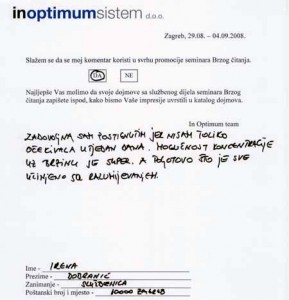 inoptimumsistem d.o.o.
Zagreb, 29.08. - 04.09.2008.
Slažem se da se moj komentar koristi u svrhu promocije seminara Brzog čitanja.
DA NE
Najljepše Vas molimo da svoje dojmove sa službenog dijela seminara Brzog
čitanja zapišete ispod, kako bismo Vaše impresije uvrstili u katalog dojmova.
In Optimum team
ZADOVOLJNA SAM POSTIGNUTIM JER NISAM TOLIKO
OČEKIVALA U TJEDAN DANA. MOGUĆNOST KONCENTRACIJE
UZ BRZINU JE SUPER. A POGOTOVO ŠTO JE SVE
UČINJENO SA RAZUMIJEVANJEM.
Ime - IRENA
Prezime - DOBRANIĆ
Zanimanje - SLUŽBENICA
Poštanski broj i mjesto - 10000 ZAGREB